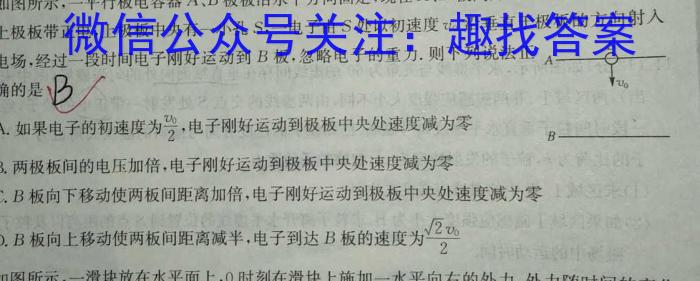 如图所示,一平行板电容器A、B极板沿水平方向固定,现在
上极板带正电,上极板中央有一小孔S,电子由S处以初速度v₀
射入
微信公众号关注：趣找答案
电场,经过一段时间电子刚好运动到B板,忽略电子的重力.则下列说法正
确的是
B
A
v₀
B
A.如果电子的初速度为v₀/2,电子刚好运动到极板中央处速度减为零
B.两极板间的电压加倍,电子刚好运动到极板中央处速度减为零
C.B板向下移动使两板间距离加倍,电子刚好运动到极板中央处速度减为零
D.B板向上移动使两板间距离减半,电子到达B板的速度为√2v₀/2
如图所示,一滑块放在水平面上,0时刻在滑块上施加一水平向右的外力,外力随时间的变化